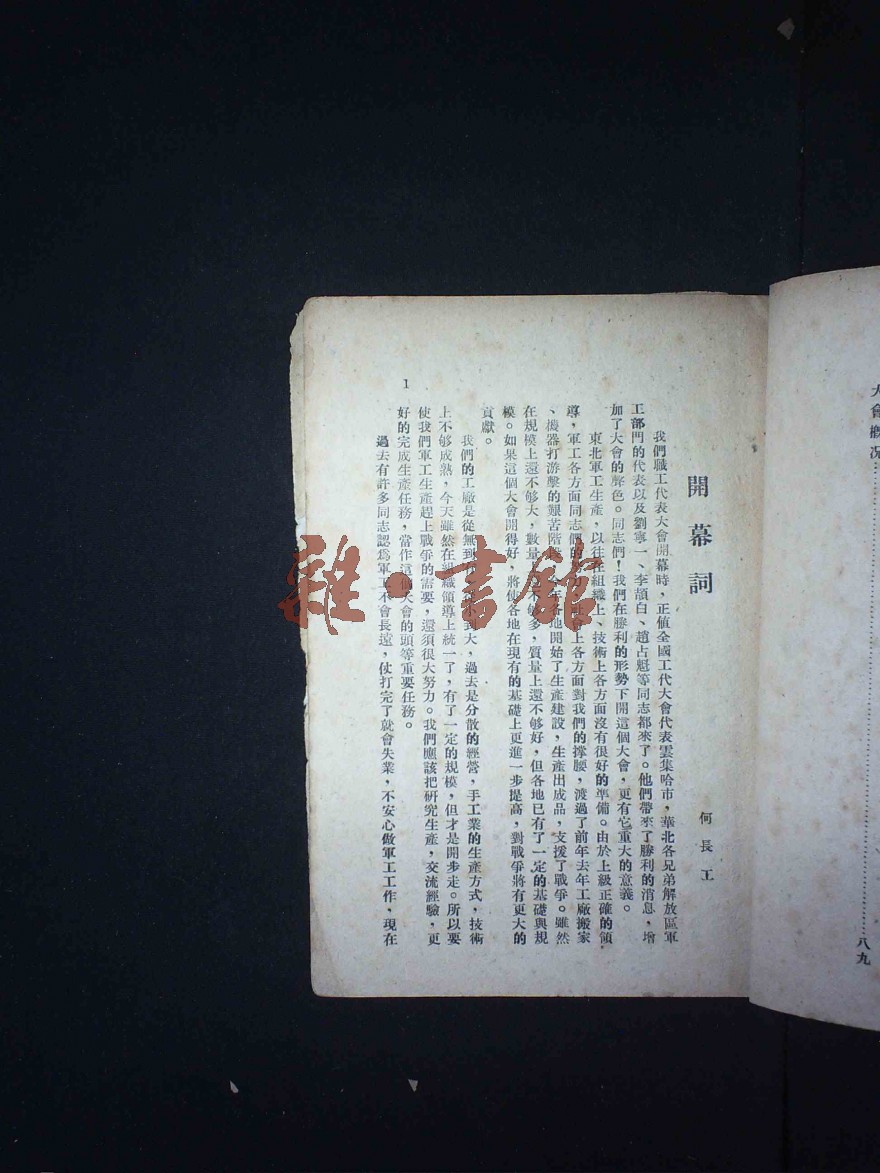 大會概况……………………八九
開幕詞
何長工
我們職工代表大會開幕時，正値全國工代大會代表雲集哈市，華北各兄弟解放區軍
工部門的代表以及劉寧一、李頡白、趙占魁等同志都來了。他們帶來了勝利的消息，增
加了大會的聲色。同志們！我們在勝利的形勢下開這個大會，更有它重大的意義。
東北軍工生產，以往在組織上、技術上各方面沒有很好的準備。由於上級正確的領
導，軍工各方面同志們的力，社會上各方面對我們的撑腰，渡過了前年去年工廠搬家
、機器打游擊的艱苦階段，今年各地開始了生產建設，生產出成品，支援了戰爭。雖然
在規模上還不够大，數量上還不够多，質量上還不够好，但各地已有了一定的基礎與規
模。如果這個大會開得好，將使各地在現有的基礎上更進一步提高，對戰爭將有更大的
貢獻。
我們的工廠是從無到小到大，過去是分散的經營，手工業的生產方式，技術
上不够成熟，今天雖然在組織領導上統一了，有了一定的規模，但才是開步走。所以要
使我們軍工生產趕上戰爭的需要，還須很大努力。我們應該把研究生產，交流經驗，更
好的完成生產任務，當作這個大會的頭等重要任務。
過去有許多同志認爲軍工不會長遠，仗打完了就會失業，不安心做軍工工作，現在
1
雜·書館